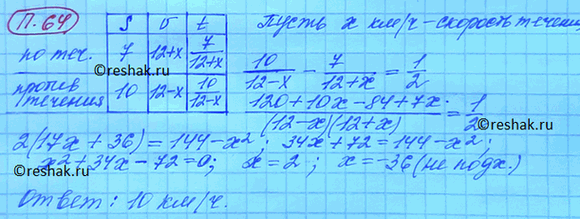 П. 64
S v t
по теч. 7 12+x 7/(12+x)
против течения 10 12-x 10/(12-x)
Пусть x км/ч - скорость течения
10/(12-x) - 7/(12+x) = 1/2
(120+10x-84+7x)/((12-x)(12+x)) = 1/2
2(17x+36)=144-x²; 34x+72=144-x²;
x²+34x-72=0; x=2; x=-36 (не подх.)
Ответ: 10 км/ч.
©reshak.ru
©reshak.ru
©reshak.ru